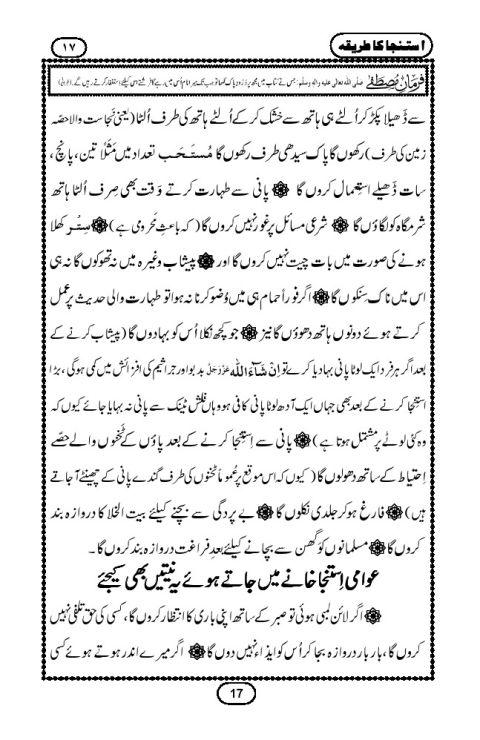 استنجا کا طریقہ
۱۷
فرمانِ مصطفےٰ صلی اللہ تعالیٰ علیہ والہ وسلم: جس نے کتاب میں مجھ پر درود پاک لکھا تو جب تک میرا نام اُس میں رہے گا فرشتے اس کیلئے استغفار کرتے رہیں گے۔
سے ڈھیلا پکڑ کر اُلٹے ہی ہاتھ سے خشک کر کے اُلٹے ہاتھ کی طرف اُلٹا (یعنی نجاست والا حصّہ
زمین کی طرف) رکھوں گا پاک سیدھی طرف رکھوں گا مُستَحَب تعداد میں مَثَلًا تین، پانچ،
سات ڈھیلے استعمال کروں گا ۞ پانی سے طہارت کرتے وَقت بھی صِرف اُلٹا ہاتھ
شرمگاہ کو لگاؤں گا ۞ شرعی مسائل پر غور نہیں کروں گا (کہ باعثِ محرومی ہے) ۞ سِتْر کھلا
ہونے کی صورت میں بات چیت نہیں کروں گا اور ۞ پیشاب وغیرہ میں نہ تھوکوں گا نہ ہی
اس میں ناک سِنکوں گا ۞ اگر فوراً حمام ہی میں وُضو کرنا نہ ہوا تو طہارت والی حدیث پر عمل
کرتے ہوئے دونوں ہاتھ دھوؤں گا نیز ۞ جو کچھ نکلا اُس کو بہا دوں گا (پیشاب کرنے کے
بعد اگر ہر فرد ایک لوٹا پانی بہا دیا کرے تو اِنْ شَآءَ اللہ عَزَّوَجَلَّ بدبو اور جراثیم کی افزائش میں کمی ہوگی، بڑا
استنجا کرنے کے بعد بھی جہاں ایک آدھ لوٹا پانی کافی ہو وہاں فلش ٹینک سے پانی نہ بہایا جائے کیوں کہ
وہ کئی لوٹے پر مشتمل ہوتا ہے) ۞ پانی سے اِستنجا کرنے کے بعد پاؤں کے ٹخنوں والے حصّے
اِحتیاط کے ساتھ دھو لوں گا (کیوں کہ اس موقع پر عُموماً ٹخنوں کی طرف گندے پانی کے چھینٹے آ جاتے
ہیں) ۞ فارغ ہو کر جلدی نکلوں گا ۞ بے پردگی سے بچنے کیلئے بیت الخلا کا دروازہ بند
کروں گا ۞ مسلمانوں کو گھن سے بچانے کیلئے بعدِ فراغت دروازہ بند کروں گا۔
عوامی اِستنجا خانے میں جاتے ہوئے یہ نیّتیں بھی کیجئے
۞ اگر لائن لمبی ہوئی تو صبر کے ساتھ اپنی باری کا انتظار کروں گا، کسی کی حق تلفی نہیں
کروں گا، بار بار دروازہ بجا کر اُس کو ایذا نہیں دوں گا ۞ اگر میرے اندر ہوتے ہوئے کسی
17